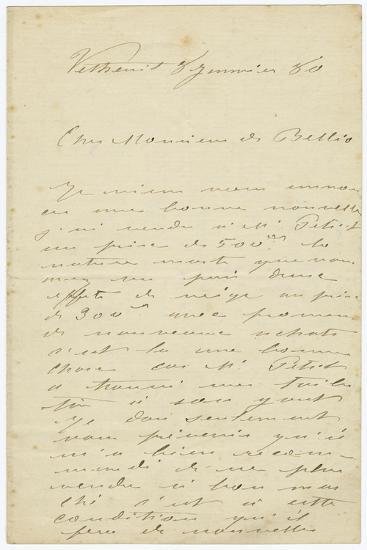 Vetheuil 8 Janvier 80
Cher Monsieur de Bellio
Je viens vous annon
cer une bonne nouvelle
j'ai vendu à Mr Petit
au prix de 500 la
nature morte que vous
avez vu puis deux
effets de neige au prix
de 300 avec promesse
de nouveaux achats
c'est là une bonne
chose car Mr Petit
a trouvé mes toiles
à son gout
Je dois seulement
vous prévenir qu'il
m'a bien recom
mandé de ne plus
vendre à bon mar
ché c'est à cette
condition qu'il
fera de nouvelles